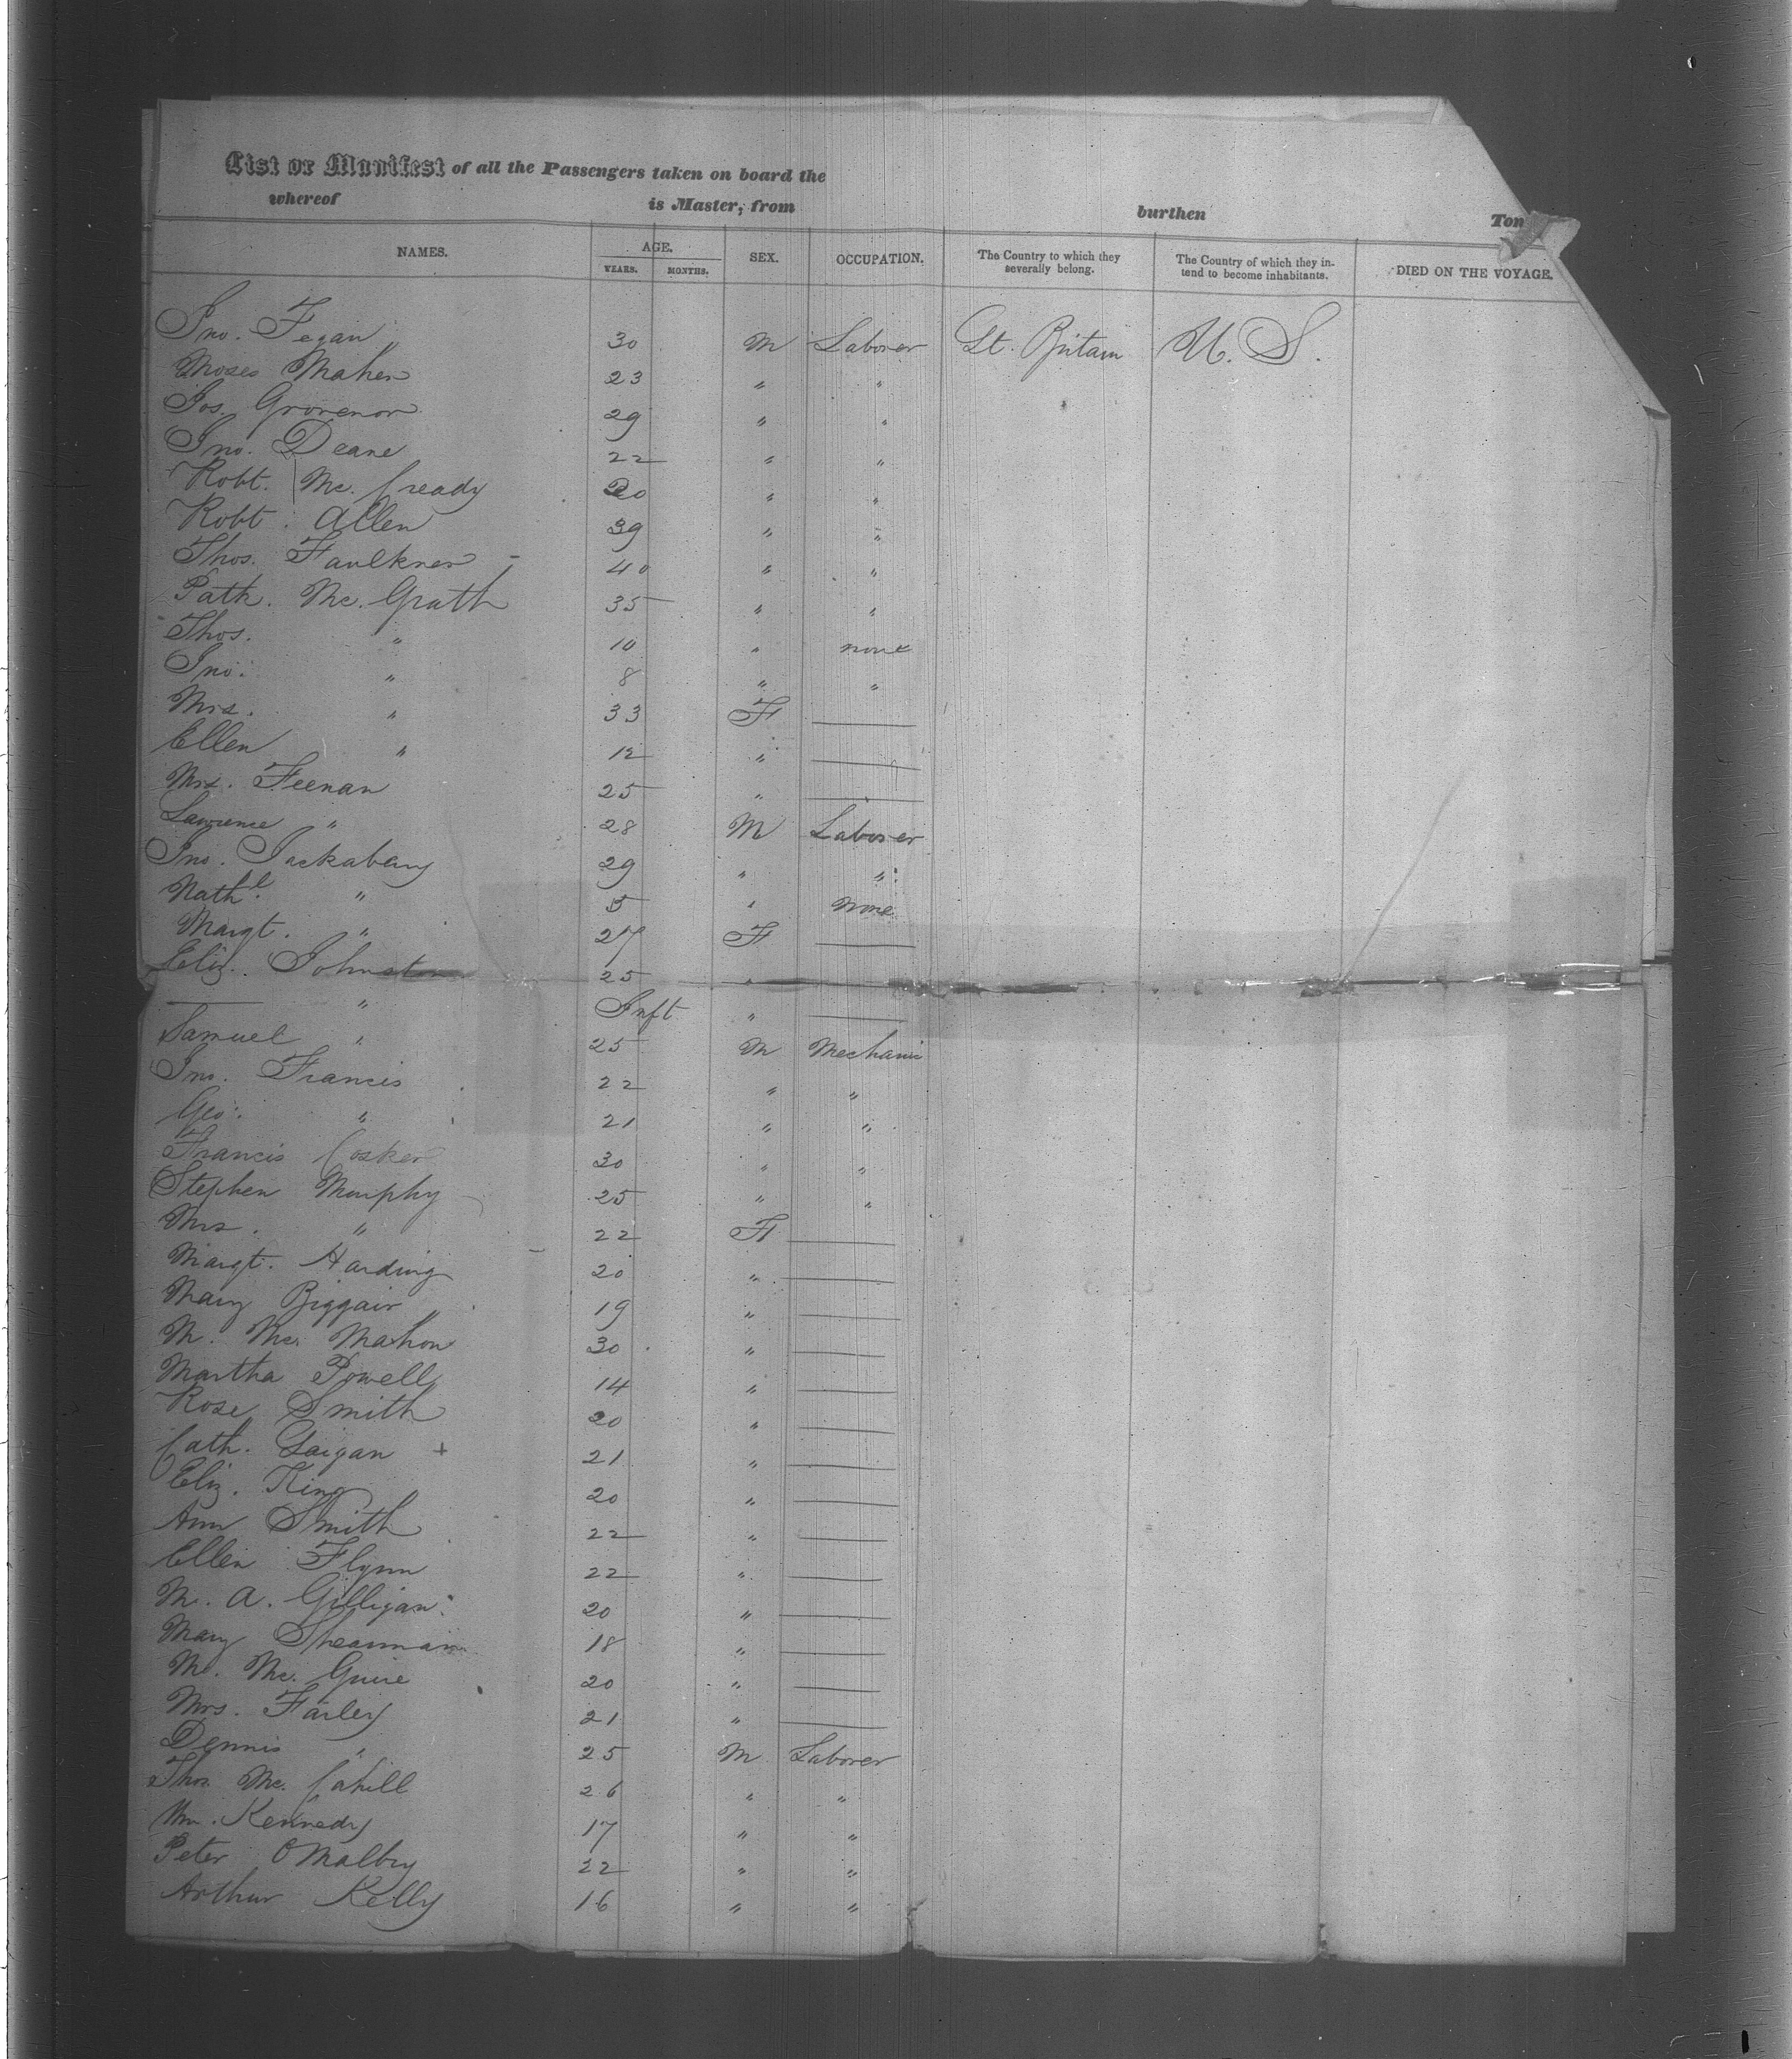 List or Manifest of all the Passengers taken on board the
whereof is Master, from burthen Ton
NAMES. AGE. YEARS. MONTHS. SEX. OCCUPATION. The Country to which they severally belong. The Country of which they intend to become inhabitants. DIED ON THE VOYAGE.
Jno. Fegan 30 M Laborer Gt. Britain U. S.
Moses Maher 23 " "
Jos. Grovenor 29 " "
Jno. Deane 22 " "
Robt. Mc. Cready 20 " "
Robt. Allen 39 " "
Thos. Faulkner 40 " "
Patk. Mc. Grath 35 " "
Thos. " 10 " none
Jno. " 8 " "
Mrs. " 33 F
Ellen " 12 "
Mrs. Feenan 25 "
Lawrence " 28 M Laborer
Jno. 29 " "
Nathl. " 5 " none
Margt. " 27 F
Eliz. Johnston 25 "
" Inft "
Samuel " 25 M Mechanic
Jno. Francis 22 " "
Geo. " 21 " "
Francis Cosker 30 " "
Stephen Murphy 25 " "
Mrs. " 22 F
Margt. Harding 20 "
Mary Biggair 19 "
M. Mc. Mahon 30 "
Martha Powell 14 "
Rose Smith 20 "
Cath. Gaigan + 21 "
Eliz. King 20 "
Ann Smith 22 "
Ellen Flynn 22 "
M. A. Gilligan 20 "
Mary Shearman 18 "
M. Mc. Guire 20 "
Mrs. Farley 21 "
Dennis " 25 M Laborer
Thos. Mc. Cahill 26 " "
Wm. Kennedy 17 " "
Peter O'Malby 22 " "
Arthur Kelly 16 " "